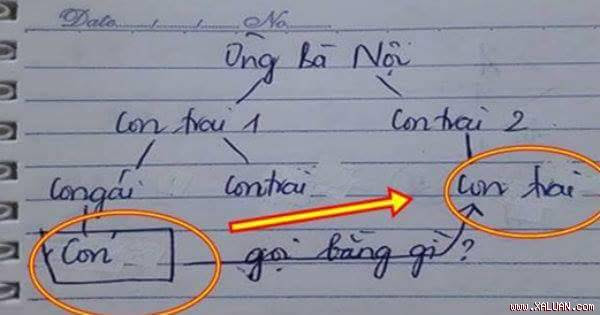 Date / / No
Ông Bà Nội
Con trai 1 Con trai 2
Con gái Con trai Con trai
Con gọi bằng gì?
www.XALUAN.com